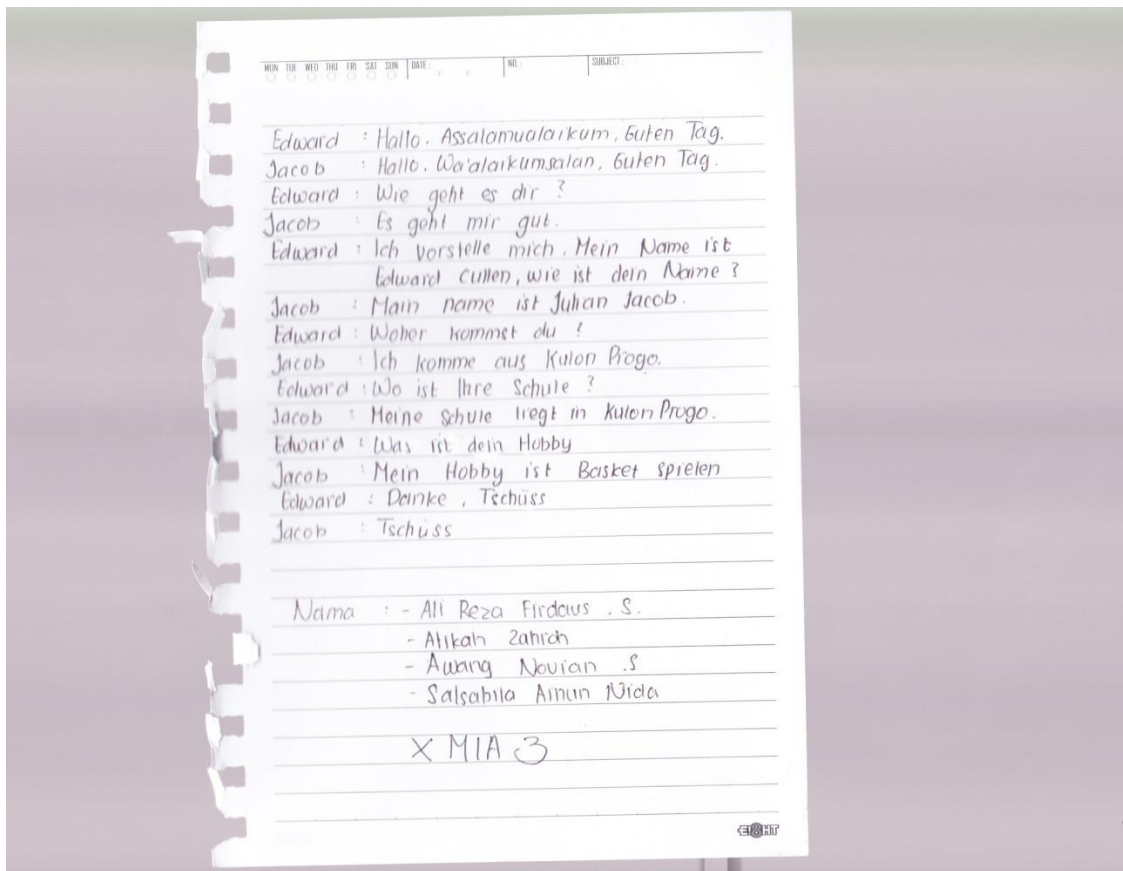 MON TUE WED THU FRI SAT SUN DATE : / / NO. : SUBJECT :
Edward : Hallo. Assalamualaikum, Guten Tag.
Jacob : Hallo. Wa'alaikumsalan, Guten Tag.
Edward : Wie geht es dir ?
Jacob : Es geht mir gut.
Edward : Ich vorstelle mich. Mein Name ist
Edward Cullen, wie ist dein Name ?
Jacob : Main name ist Julian Jacob.
Edward : Woher kommst du ?
Jacob : Ich komme aus Kulon Progo.
Edward : Wo ist Ihre Schule ?
Jacob : Meine Schule liegt in Kulon Progo.
Edward : Was ist dein Hobby
Jacob : Mein Hobby ist Basket spielen
Edward : Danke , Tschüss
Jacob : Tschüss
Nama : - Ali Reza Firdaus . S.
- Atikah Zahrah
- Awang Novian .S
- Salsabila Ainun Nida
X MIA 3
EIGHT